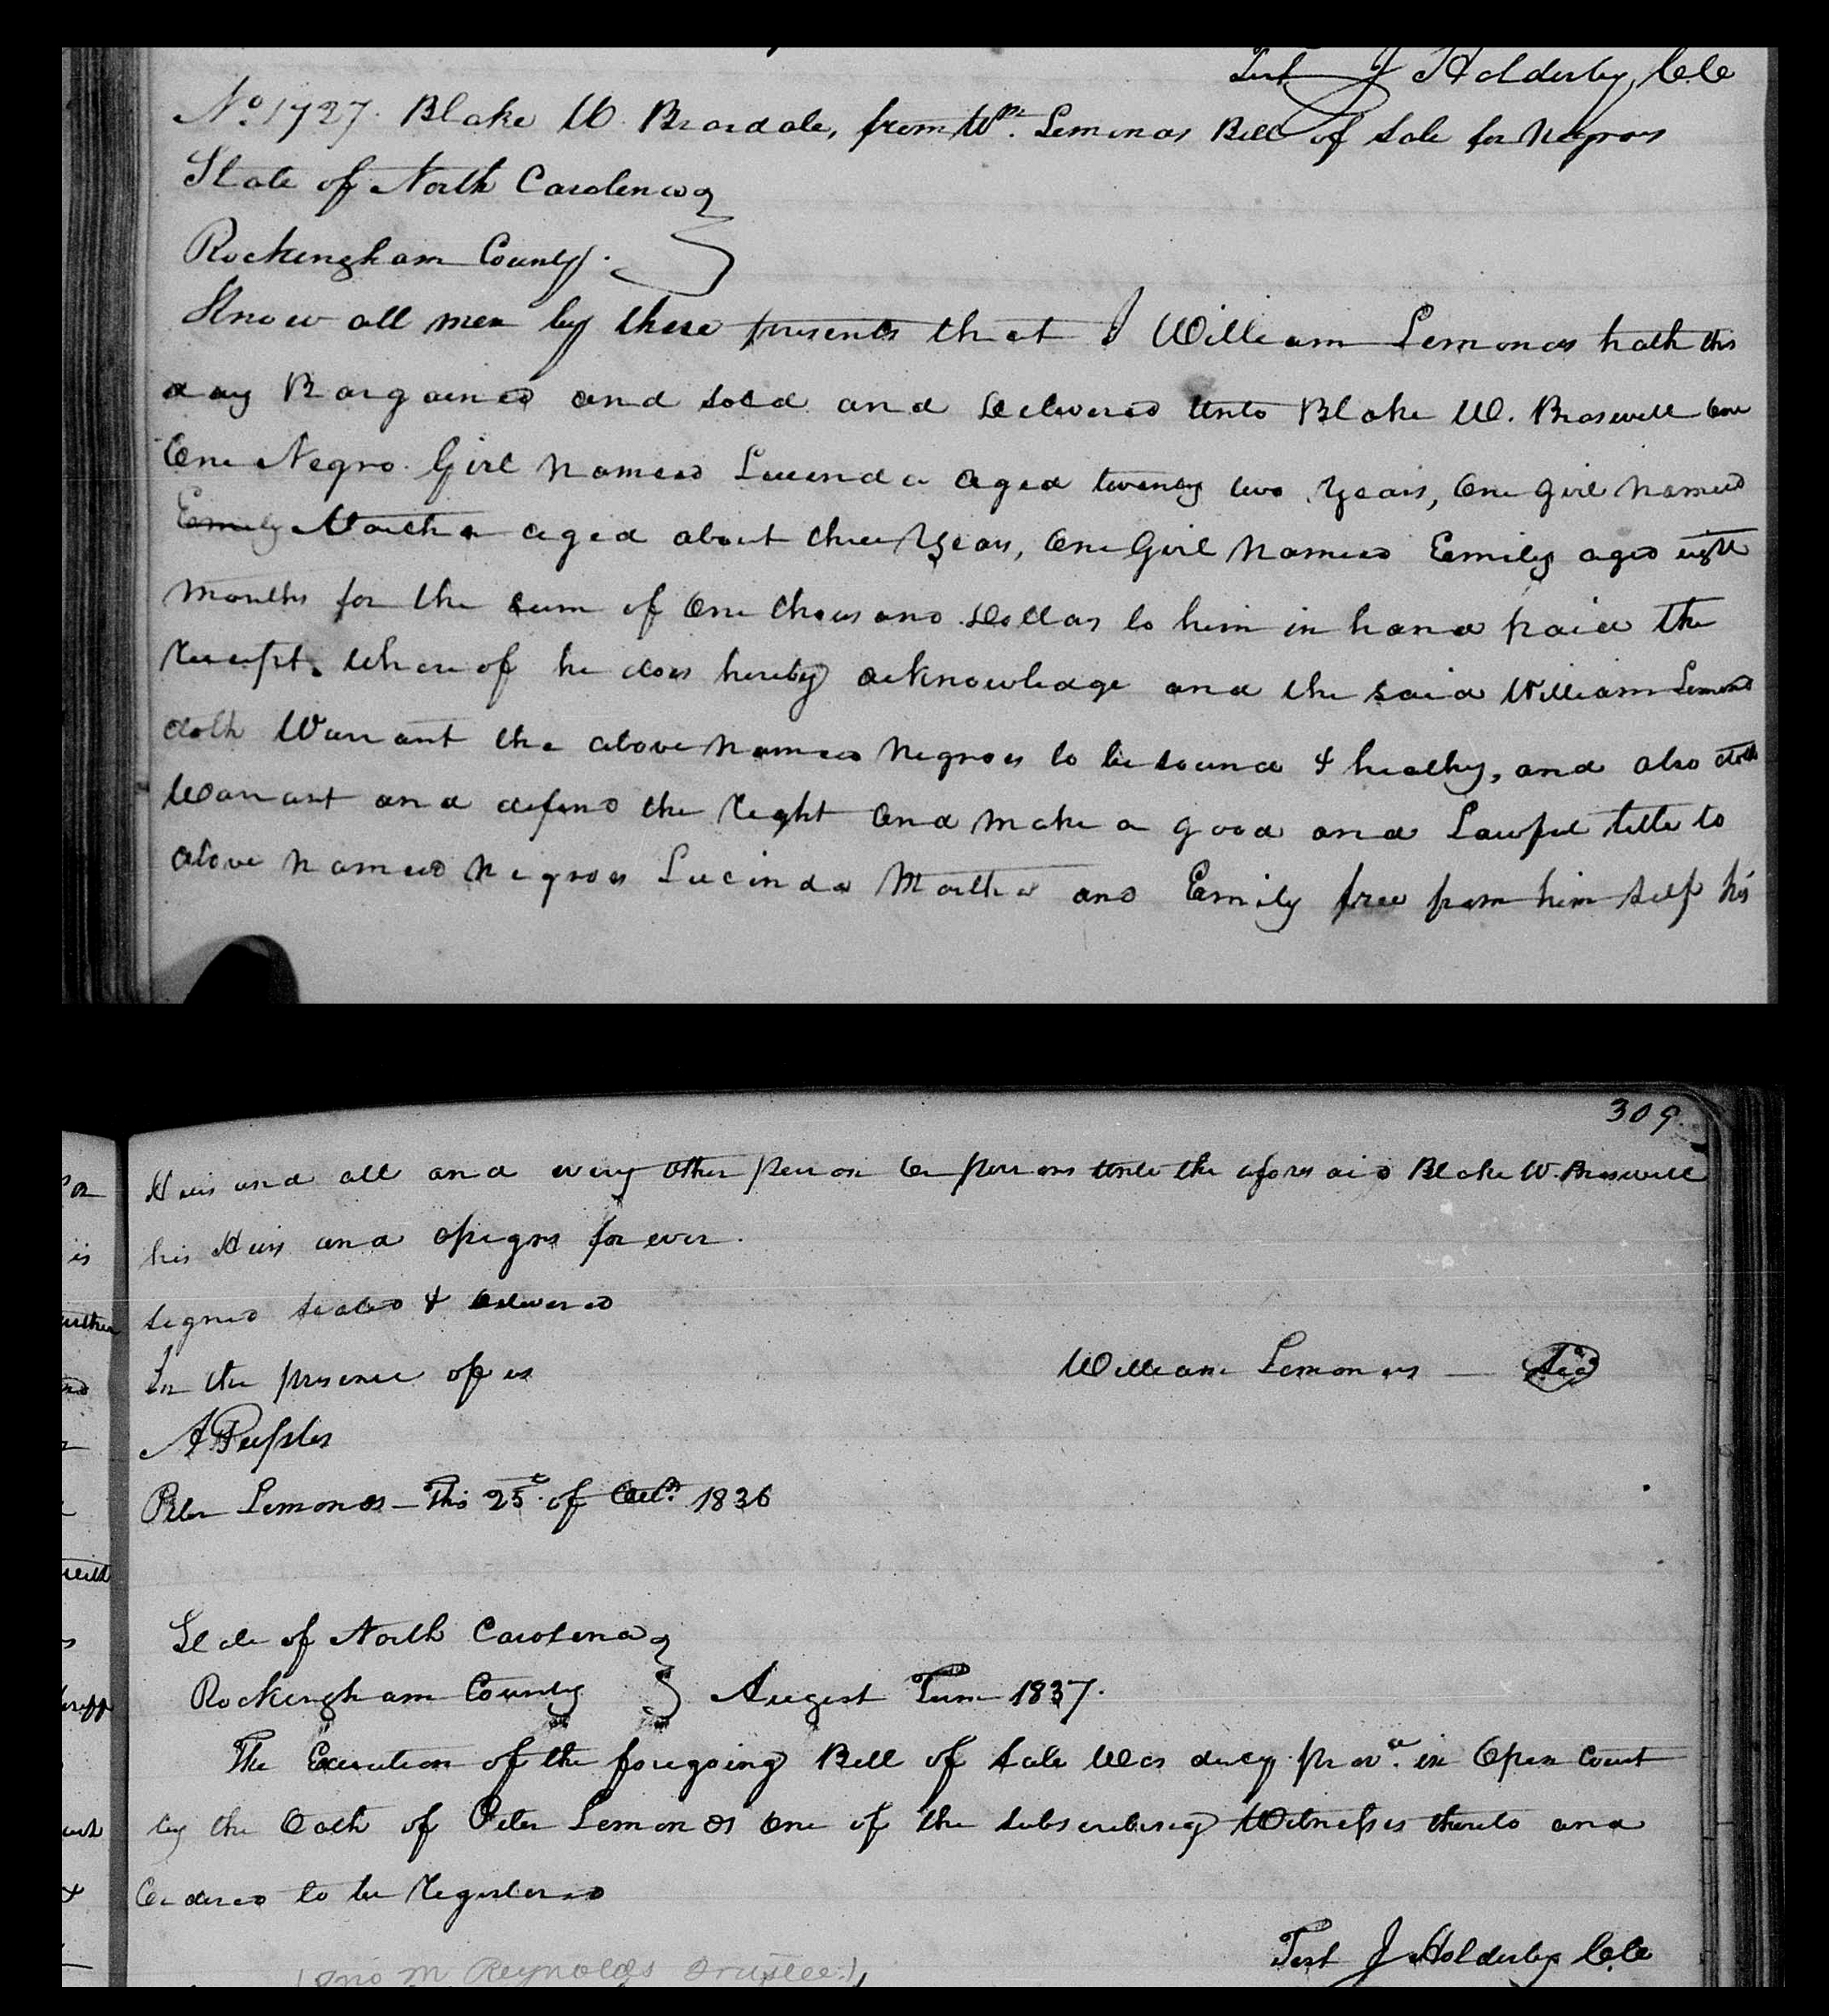 Test J Holderby, C.C.C
No. 1727. Blake W. Brasdale, from Wm. Lemonas Bill of Sale for Negroes
State of North Carolina
Rockingham County.
Know all men by these presents that I William Lemonas hath this
day Bargained and sold and delivered unto Blake W. Braswell One
One Negro Girl Named Lucinda aged twenty two years, One Girl Named
Emily Martha aged about three years, One Girl Named Emily aged eight
months for the sum of One thousand dollars to him in hand paid the
Receipt. Whereof he does hereby acknowledge and the said William Lemons
doth Warrant the above Named Negroes to be sound & healthy, and also doth
Warrant and defend the Right and Make a good and Lawful title to
above Named Negroes Lucinda Martha and Emily free from him self his
309.
Heirs and all and every other person or persons unto the aforesaid Blake W. Braswell
his Heirs and assigns for ever.
Signed sealed & delivered
In the presence of us William Lemonas Seal
A Peeples
Peter Lemonas This 25th of Octr. 1836
State of North Carolina
Rockingham County August Term 1837.
The Execution of the foregoing Bill of Sale Was duly prov.d in Open Court
by the Oath of Peter Lemonds One of the Subscribing Witnesses thereto and
Ordered to be Registered
Test J Holderby C.C.C
(Jno M Reynolds Trustee),